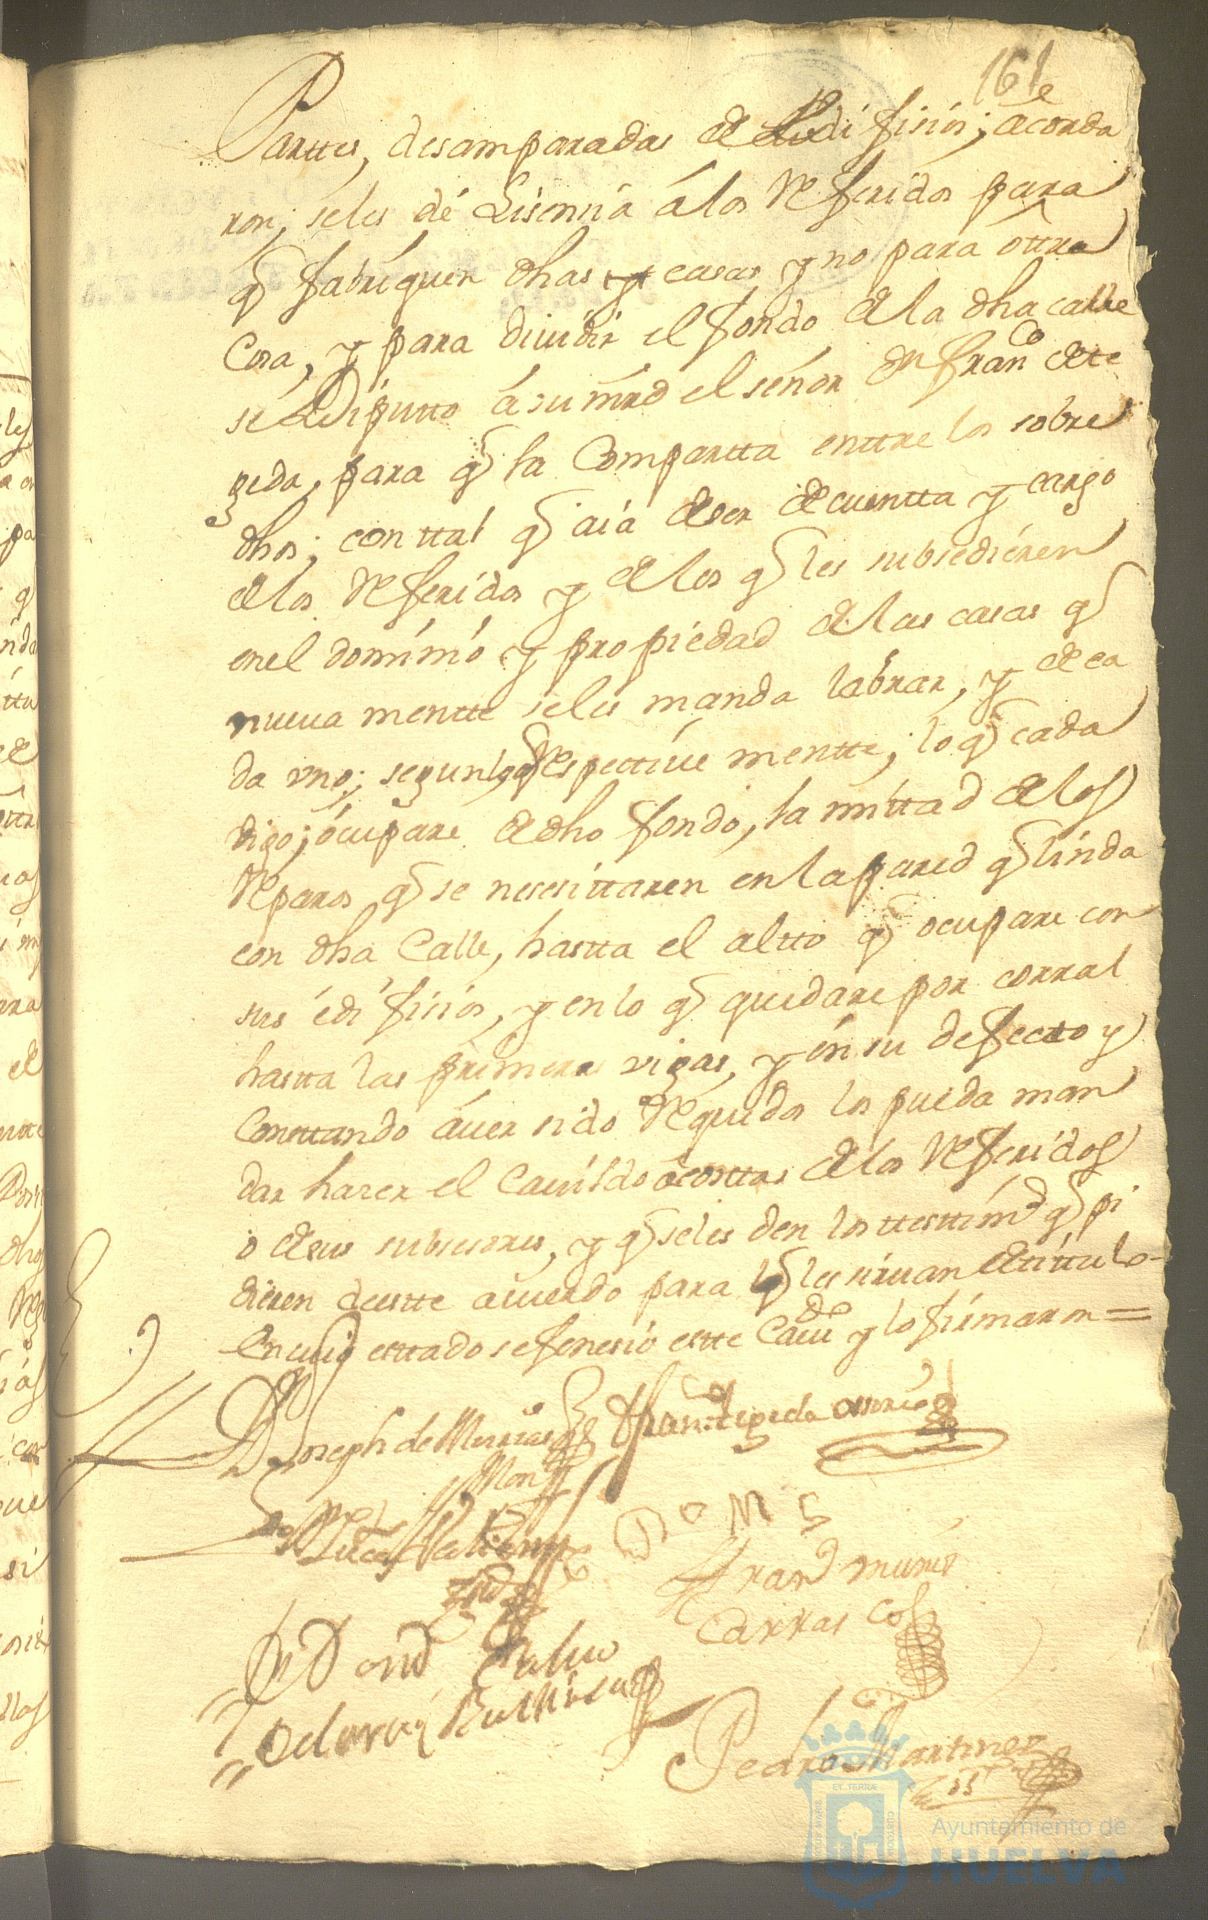 161
Parttes, desamparadas de edifisios; acorda
ron, seles dé Lisensia á los Referidos para
q fabriquen dhas casas y no para ôttra
Cosa, y para diuidir el fondo de la dha calle
se diputto á su mrd el señor dn franco de te
zeda, para q la Compartta enttre los sobre
dhos; con ttal q aia de ser de cuentta y cargo
de los Referidos y de los q les subsedieren
en el dominio y propiedad de las casas q
nueua mentte seles manda labrar, y de ca
da vno; segun lo q Respectiue mentte; lo q cada
digo; ócupare de dho fondo, la mittad de los
Reparos q se nesesittaren en la pared q linda
con dha Calle, hastta el altto q ocupare con
sus édifisios, y en lo q quedare por corral
hastta las primeras vigas, y én su defectto y
Consttando áuer sido Requidos los pueda man
dar hazer el Cauildo á costtas de los Referidos
o de sus subsesores, y q seles den los testtimos q pi
dieren destte acuerdo para q les siruan de tittulo
En cuio esttado se fenesio estte Cauildo y lo firmaron =
Dn Joseph de
Fran Tezeda ossorio
Fran munis
Carrascos
Pedro Martinez
Ayuntamiento de
HUELVA